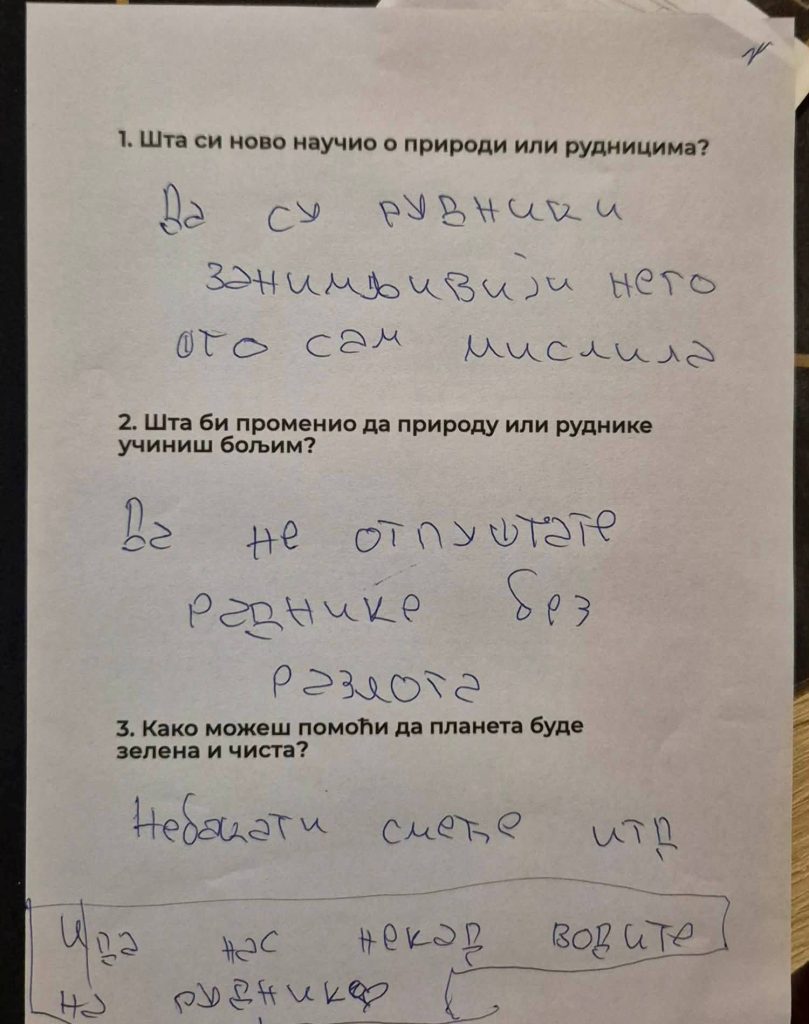 1. Шта си ново научио о природи или рудницима?
Да су рудники
занимљивији него
што сам мислила
2. Шта би променио да природу или руднике
учиниш бољим?
Да не отпуштате
раднике без
разлога
3. Како можеш помоћи да планета буде
зелена и чиста?
Небацати смеће итд
И да нас некад водите
на руднике